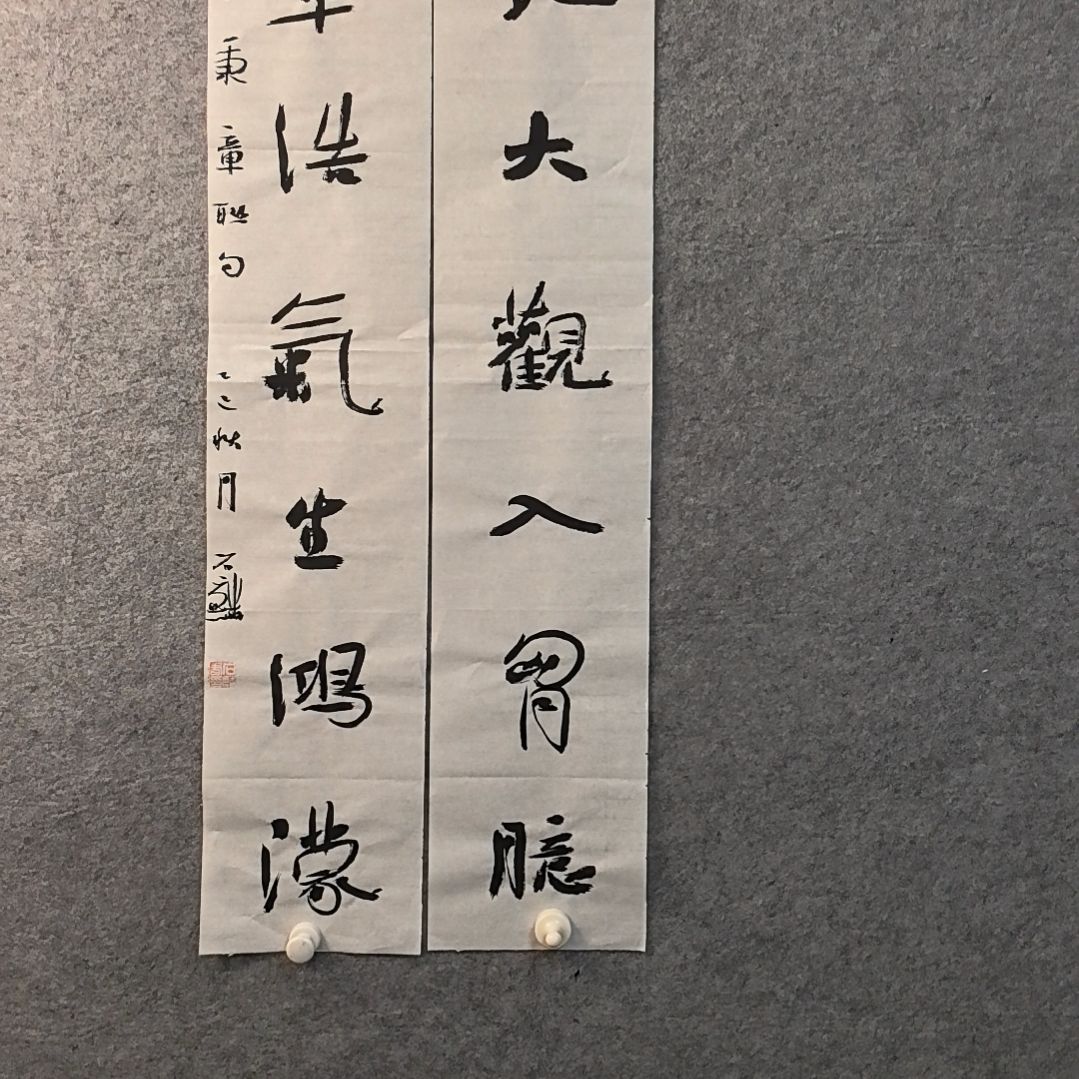 大觀入胷臆
浩氣生鴻濛
秉章聯句
乙巳秋月 石